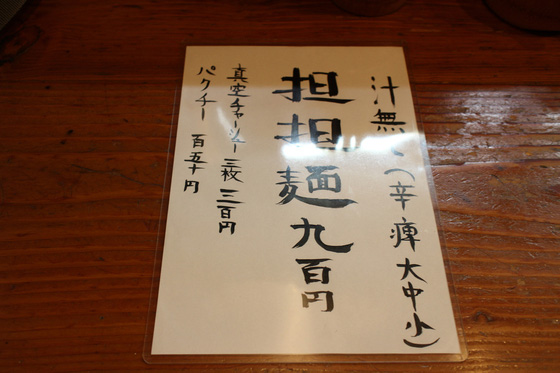 汁無し(辛痺大中小)
担担麺九百円
真空チャーシュー三枚 三百円
パクチー 百五十円